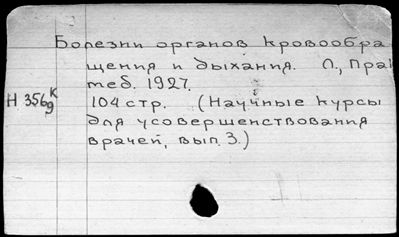 Болезни органов кровообра
щения и дыхания. Л., Прак
мед. 1927.
Н 356/9 К
104 стр. (Научные курсы
для усовершенствования
врачей, вып. 3.)